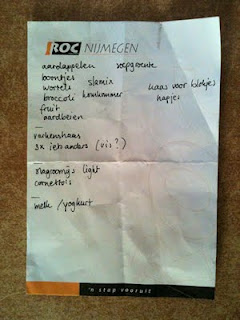 ROC NIJMEGEN
aardappelen soepgroente
boontjes
wortels slamix kaas voor blokjes
broccoli komkommer hapjes
fruit
aardbeien
varkenshaas
3x iets anders (vis?)
magroomijs light
cornetto's
melk / yoghurt
'n stap vooruit